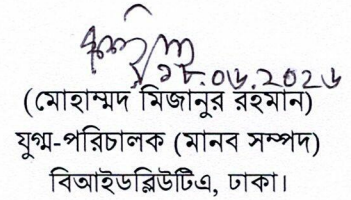 ১৮.০৬.২০২৬
(মোহাম্মদ মিজানুর রহমান)
যুগ্ম-পরিচালক (মানব সম্পদ)
বিআইডব্লিউটিএ, ঢাকা।